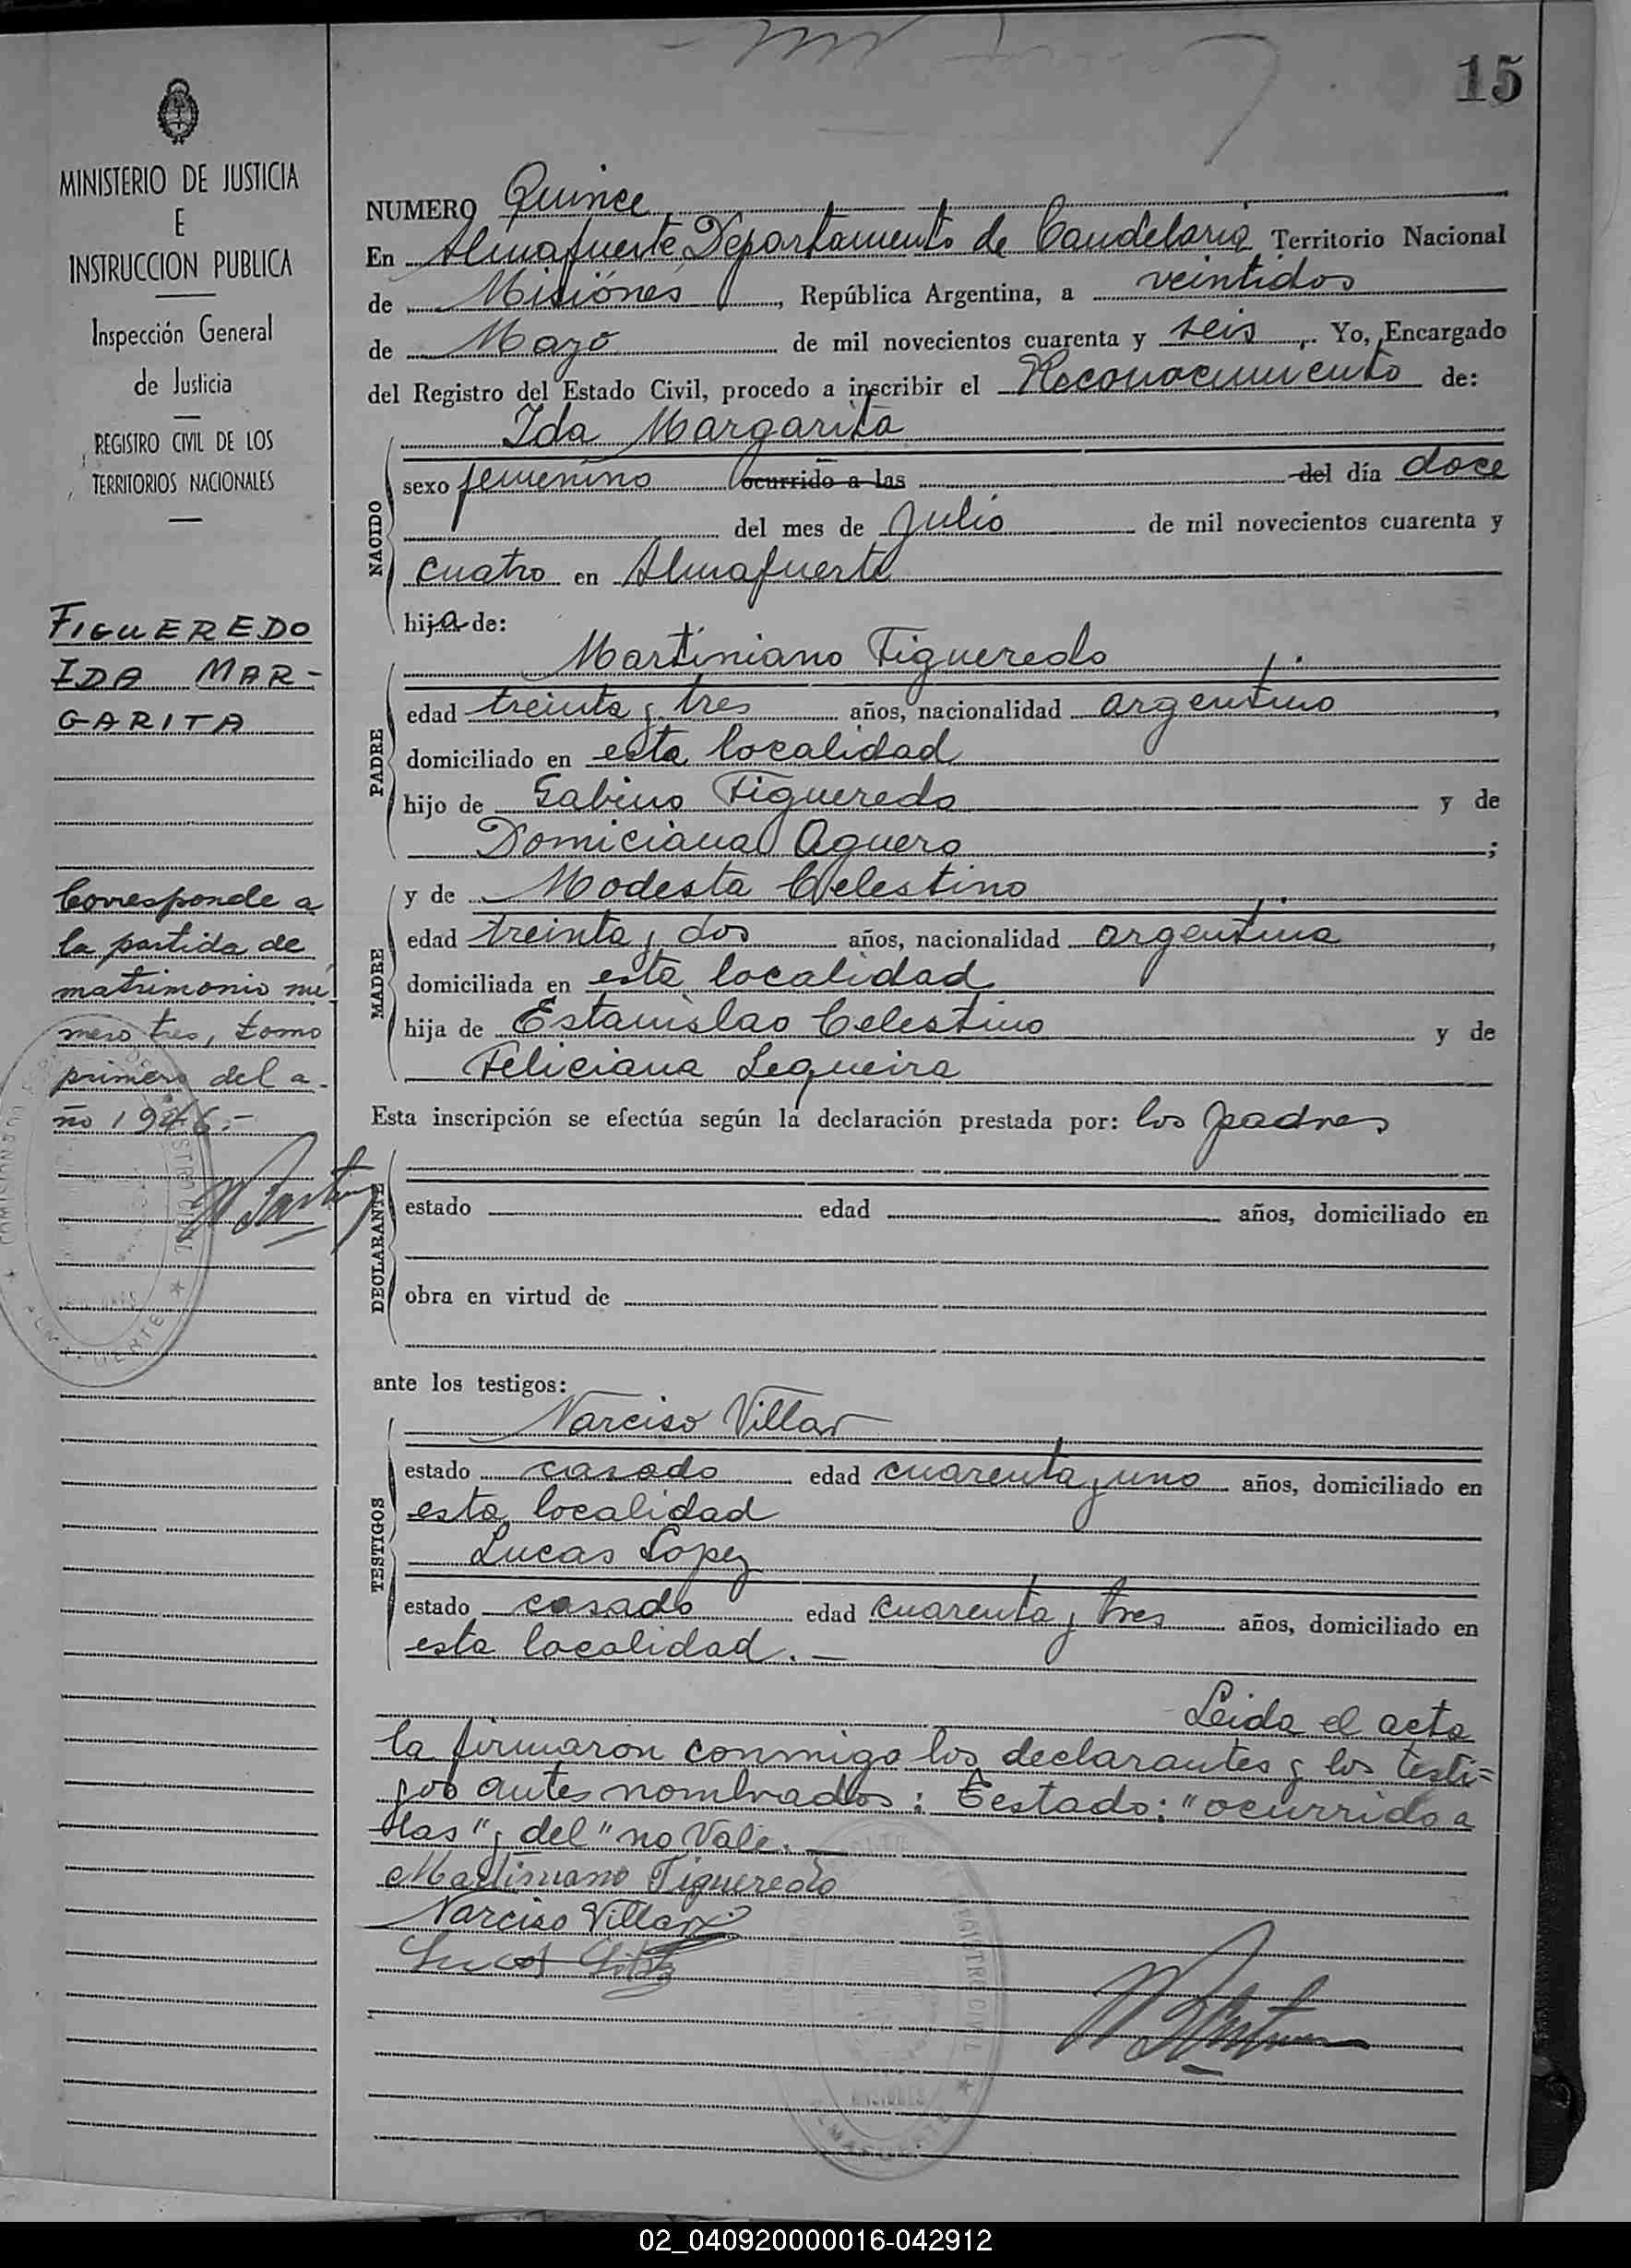 15
MINISTERIO DE JUSTICIA
E
INSTRUCCION PUBLICA
Inspección General
de Justicia
REGISTRO CIVIL DE LOS
TERRITORIOS NACIONALES
FIGUEREDO
IDA MAR-
GARITA
Corresponde a
la partida de
matrimonio nú
mero tres, tomo
primero del a-
ño 1946.-
NUMERO Quince
En Almafuerte, Departamento de Candelaria Territorio Nacional
de Misiones, República Argentina, a veintidos
de Mayo de mil novecientos cuarenta y seis. Yo, Encargado
del Registro del Estado Civil, procedo a inscribir el Reconocimiento de:
NACIDO
Ida Margarita
sexo femenino ocurrido a las del día doce
del mes de Julio de mil novecientos cuarenta y
cuatro en Almafuerte
hija de:
PADRE
Martiniano Figueredo
edad treinta y tres años, nacionalidad argentino,
domiciliado en esta localidad
hijo de Gabino Figueredo y de
Domiciana Aguero;
MADRE
y de Modesta Celestino
edad treinta y dos años, nacionalidad argentina,
domiciliada en esta localidad
hija de Estanislao Celestino y de
Feliciana Sequeira
Esta inscripción se efectúa según la declaración prestada por: los padres
DECLARANTE
estado edad años, domiciliado en
obra en virtud de
ante los testigos:
TESTIGOS
Narciso Villar
estado casado edad cuarenta y uno años, domiciliado en
esta localidad
Lucas Lopez
estado casado edad cuarenta y tres años, domiciliado en
esta localidad.-
Leida el acta
la firmaron conmigo los declarantes y los testi=
gos antes nombrados: Testado: "ocurrido a
las" y del" no Vale.-
Martiniano Figueredo
Narciso Villar
REGISTRO CIVIL
MISIONES
ALMAFUERTE
02_040920000016-042912